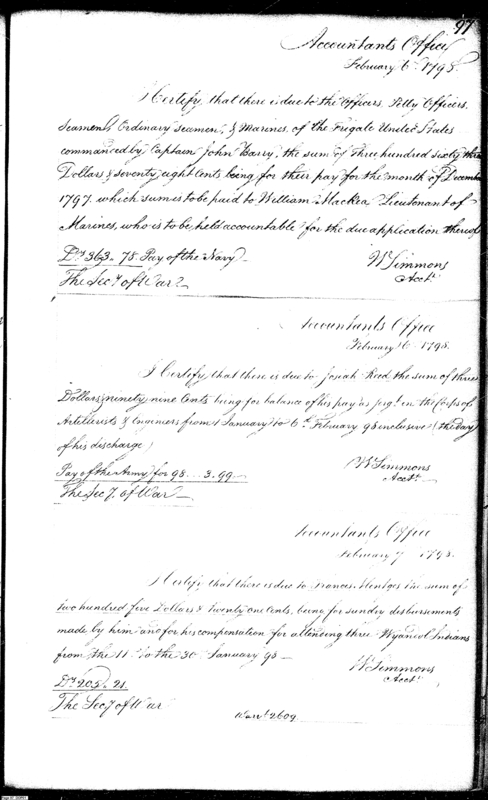 97
Accountants Office
February 6th 1798.
I Certify, that there is due to the Officers, Petty Officers,
Seamen, Ordinary Seamen, & Marines, of the Frigate United States
commanded by Captain John Barry, the sum of three hundred sixty three
Dollars & seventy eight cents being for their pay for the month of December
1797. which sum is to be paid to William Mackea Lieutenant of
Marines, who is to be held accountable for the due application thereof
Drs 363. 78. Pay of the Navy
The Secy of War
Wm Simmons
Acct.
Accountants Office
February 6 1798.
I Certify, that there is due to Josiah Reed the sum of three
Dollars & ninety nine Cents being for balance of his pay as in the Corps of
Artillerists & Engineers from 1 January to 6th February 98 inclusive (the day
of his discharge)
Pay of the Army for 98 ... 3.99
The Secy. of War
Wm Simmons
Acct.
Accountants Office
February 7 1798.
I Certify, that there is due to Francis the sum of
two hundred five Dollars & twenty one Cents, being for sundry disbursements
made by him and for his compensation for attending three Indians
from the 11 to the 30 January 98
Drs 205. 21
The Secy of War
Wm Simmons
Acct.
Warrt 2609